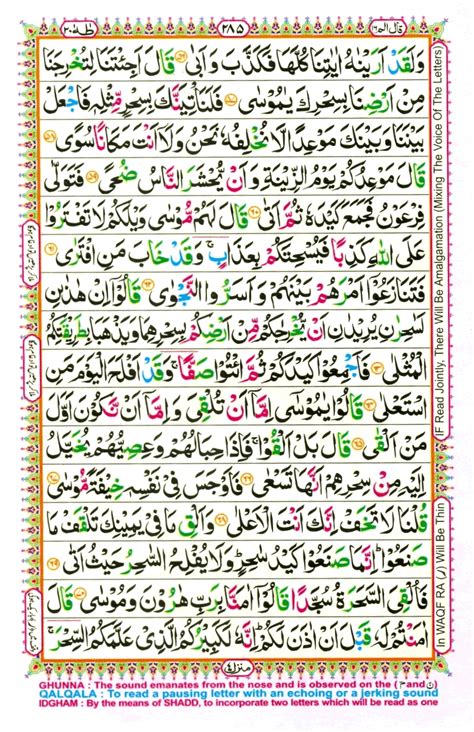 قال الم ١٦
٢٨٥
طٰهٰ ٢٠
وَلَقَدْ اَرَيْنٰهُ اٰيٰتِنَا كُلَّهَا فَكَذَّبَ وَاَبٰى ۝٥٦ قَالَ اَجِئْتَنَا لِتُخْرِجَنَا
مِنْ اَرْضِنَا بِسِحْرِكَ يٰمُوْسٰى ۝٥٧ فَلَنَاْتِيَنَّكَ بِسِحْرٍ مِّثْلِهٖ فَاجْعَلْ
بَيْنَنَا وَبَيْنَكَ مَوْعِدًا لَّا نُخْلِفُهٗ نَحْنُ وَلَاۤ اَنْتَ مَكَانًا سُوًى ۝٥٨
قَالَ مَوْعِدُكُمْ يَوْمُ الزِّيْنَةِ وَاَنْ يُّحْشَرَ النَّاسُ ضُحًى ۝٥٩ فَتَوَلّٰى
فِرْعَوْنُ فَجَمَعَ كَيْدَهٗ ثُمَّ اَتٰى ۝٦٠ قَالَ لَهُمْ مُّوْسٰى وَيْلَكُمْ لَا تَفْتَرُوْا
عَلَى اللّٰهِ كَذِبًا فَيُسْحِتَكُمْ بِعَذَابٍ ۚ وَقَدْ خَابَ مَنِ افْتَرٰى ۝٦١
فَتَنَازَعُوْۤا اَمْرَهُمْ بَيْنَهُمْ وَاَسَرُّوا النَّجْوٰى ۝٦٢ قَالُوْۤا اِنْ هٰذٰىنِ
لَسٰحِرٰنِ يُرِيْدٰنِ اَنْ يُّخْرِجٰكُمْ مِّنْ اَرْضِكُمْ بِسِحْرِهِمَا وَيَذْهَبَا بِطَرِيْقَتِكُمُ
الْمُثْلٰى ۝٦٣ فَاَجْمِعُوْا كَيْدَكُمْ ثُمَّ ائْتُوْا صَفًّا ۚ وَقَدْ اَفْلَحَ الْيَوْمَ مَنِ
اسْتَعْلٰى ۝٦٤ قَالُوْا يٰمُوْسٰۤى اِمَّاۤ اَنْ تُلْقِيَ وَاِمَّاۤ اَنْ نَّكُوْنَ اَوَّلَ
مَنْ اَلْقٰى ۝٦٥ قَالَ بَلْ اَلْقُوْا ۚ فَاِذَا حِبَالُهُمْ وَعِصِيُّهُمْ يُخَيَّلُ
اِلَيْهِ مِنْ سِحْرِهِمْ اَنَّهَا تَسْعٰى ۝٦٦ فَاَوْجَسَ فِيْ نَفْسِهٖ خِيْفَةً مُّوْسٰى ۝٦٧
قُلْنَا لَا تَخَفْ اِنَّكَ اَنْتَ الْاَعْلٰى ۝٦٨ وَاَلْقِ مَا فِيْ يَمِيْنِكَ تَلْقَفْ مَا
صَنَعُوْا ؕ اِنَّمَا صَنَعُوْا كَيْدُ سٰحِرٍ ؕ وَلَا يُفْلِحُ السَّاحِرُ حَيْثُ اَتٰى ۝٦٩
فَاُلْقِيَ السَّحَرَةُ سُجَّدًا قَالُوْۤا اٰمَنَّا بِرَبِّ هٰرُوْنَ وَمُوْسٰى ۝٧٠ قَالَ
اٰمَنْتُمْ لَهٗ قَبْلَ اَنْ اٰذَنَ لَكُمْ ؕ اِنَّهٗ لَكَبِيْرُكُمُ الَّذِيْ عَلَّمَكُمُ السِّحْرَ ۚ
منزل ٤
IF Read Jointly, There Will Be Amalgamation (Mixing The Voice Of The Letters)
In WAQF RA (ر) Will Be Thin
GHUNNA : The sound emanates from the nose and is observed on the (م and ن)
QALQALA : To read a pausing letter with an echoing or a jerking sound
IDGHAM : By the means of SHADD, to incorporate two letters which will be read as one